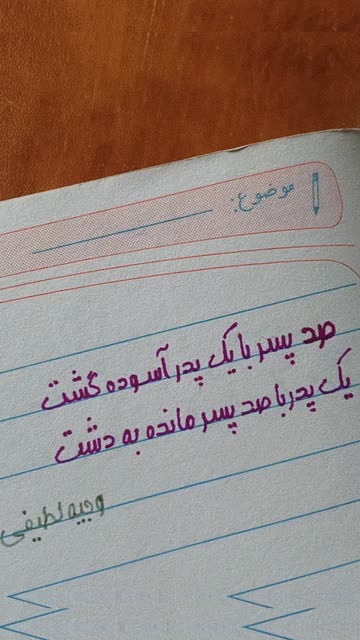 موضوع:
صد پسر با یک پدر آسوده گشت
یک پدر با صد پسر مانده به دشت
وجیه لطیفی